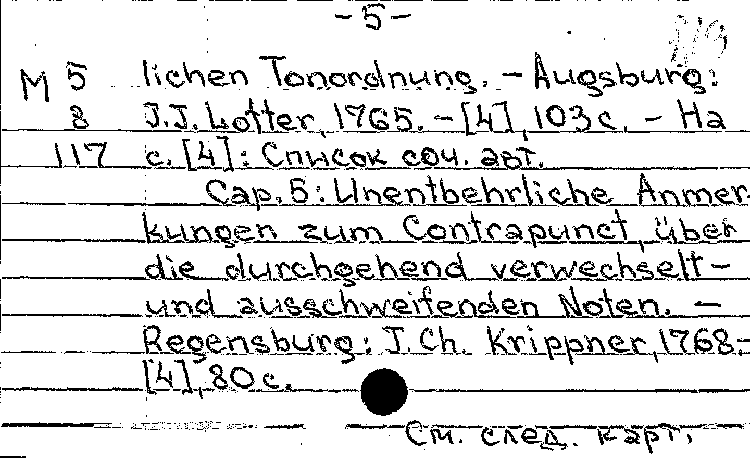 -5-
M 5 lichen Tonordnung. - Augsburg:
8 J.J. Lotter, 1765. - [4], 103 с. - На
117 с. [4]: Список соч. авт.
Cap. 5: Unentbehrliche Anmer-
kungen zum Contrapunct, über
die durchgehend verwechselt-
und ausschweifenden Noten. -
Regensburg: J. Ch. Krippner, 1768.-
[4], 80 с.
См. след. карт.